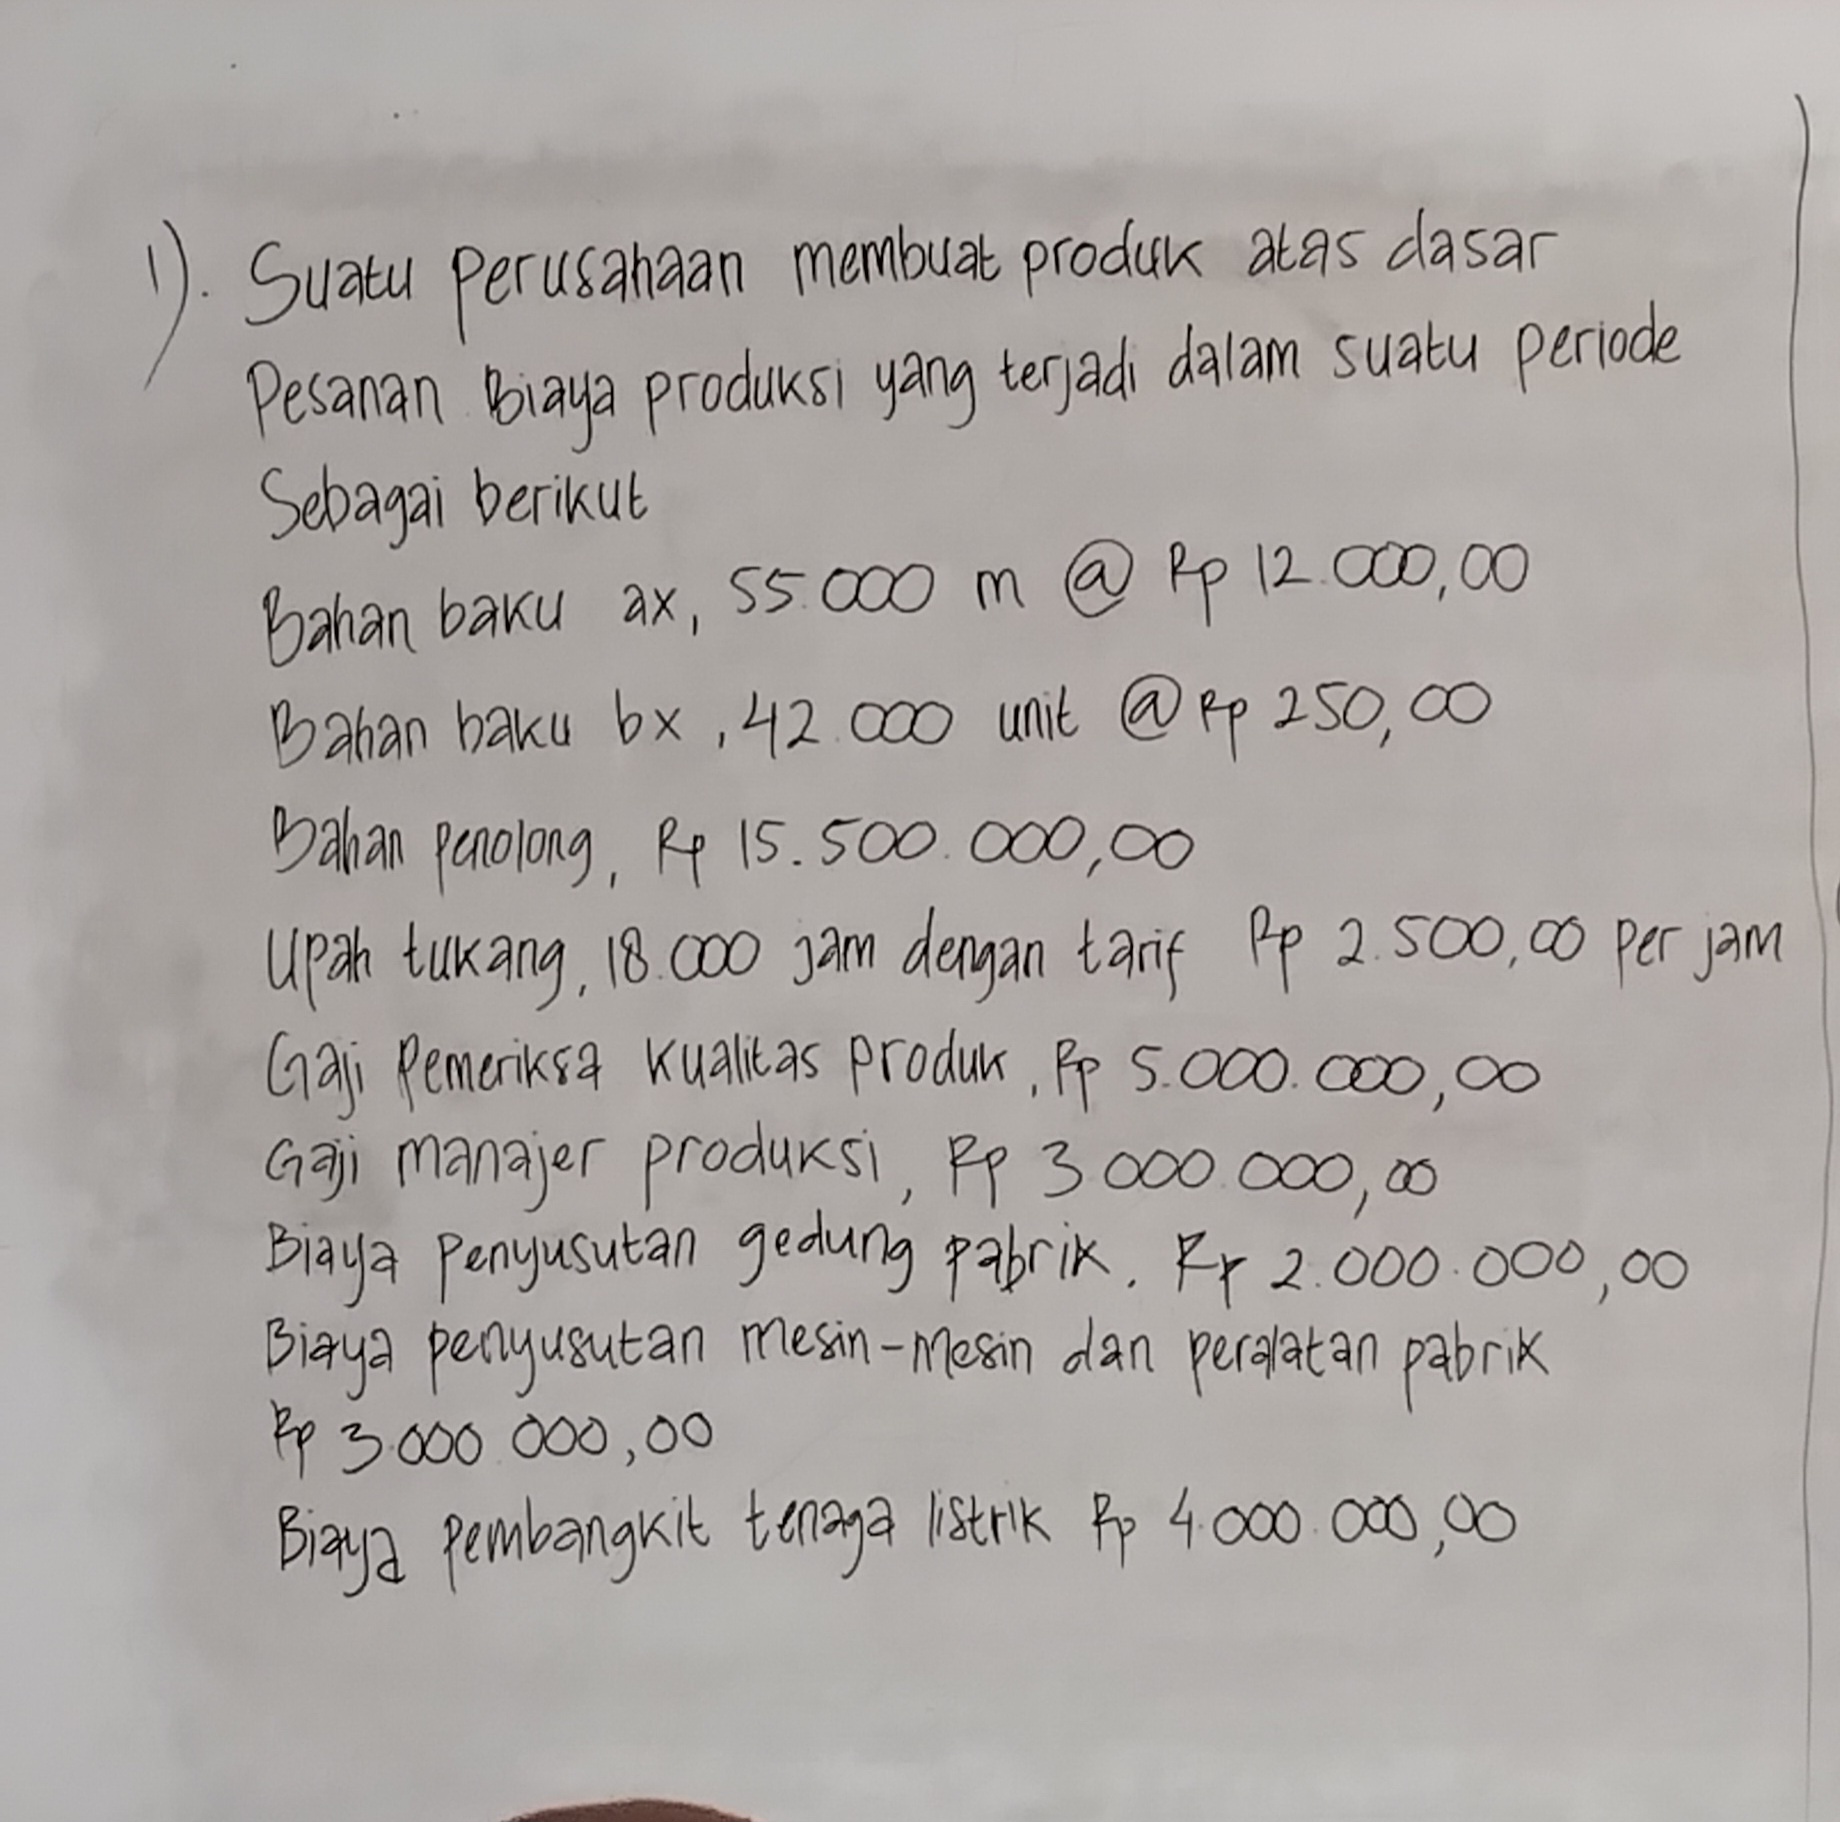 1). Suatu perusahaan membuat produk atas dasar
Pesanan Biaya produksi yang terjadi dalam suatu periode
Sebagai berikut
Bahan baku ax, 55.000 m @ Rp 12.000,00
Bahan baku bx, 42.000 unit @ Rp 250,00
Bahan penolong, Rp 15.500.000,00
Upah tukang, 18.000 jam dengan tarif Rp 2.500,00 per jam
Gaji Pemeriksa kualitas produk, Rp 5.000.000,00
Gaji manajer produksi, Rp 3.000.000,00
Biaya Penyusutan gedung pabrik. Rp 2.000.000,00
Biaya penyusutan mesin-mesin dan peralatan pabrik
Rp 3.000.000,00
Biaya Pembangkit tenaga listrik Rp 4.000.000,00